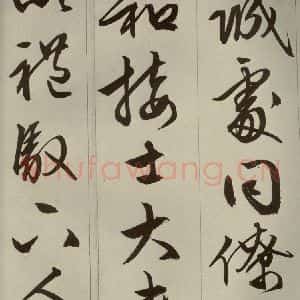 誠處同僚
和接士大夫
以禮馭下人
shufawang.CN